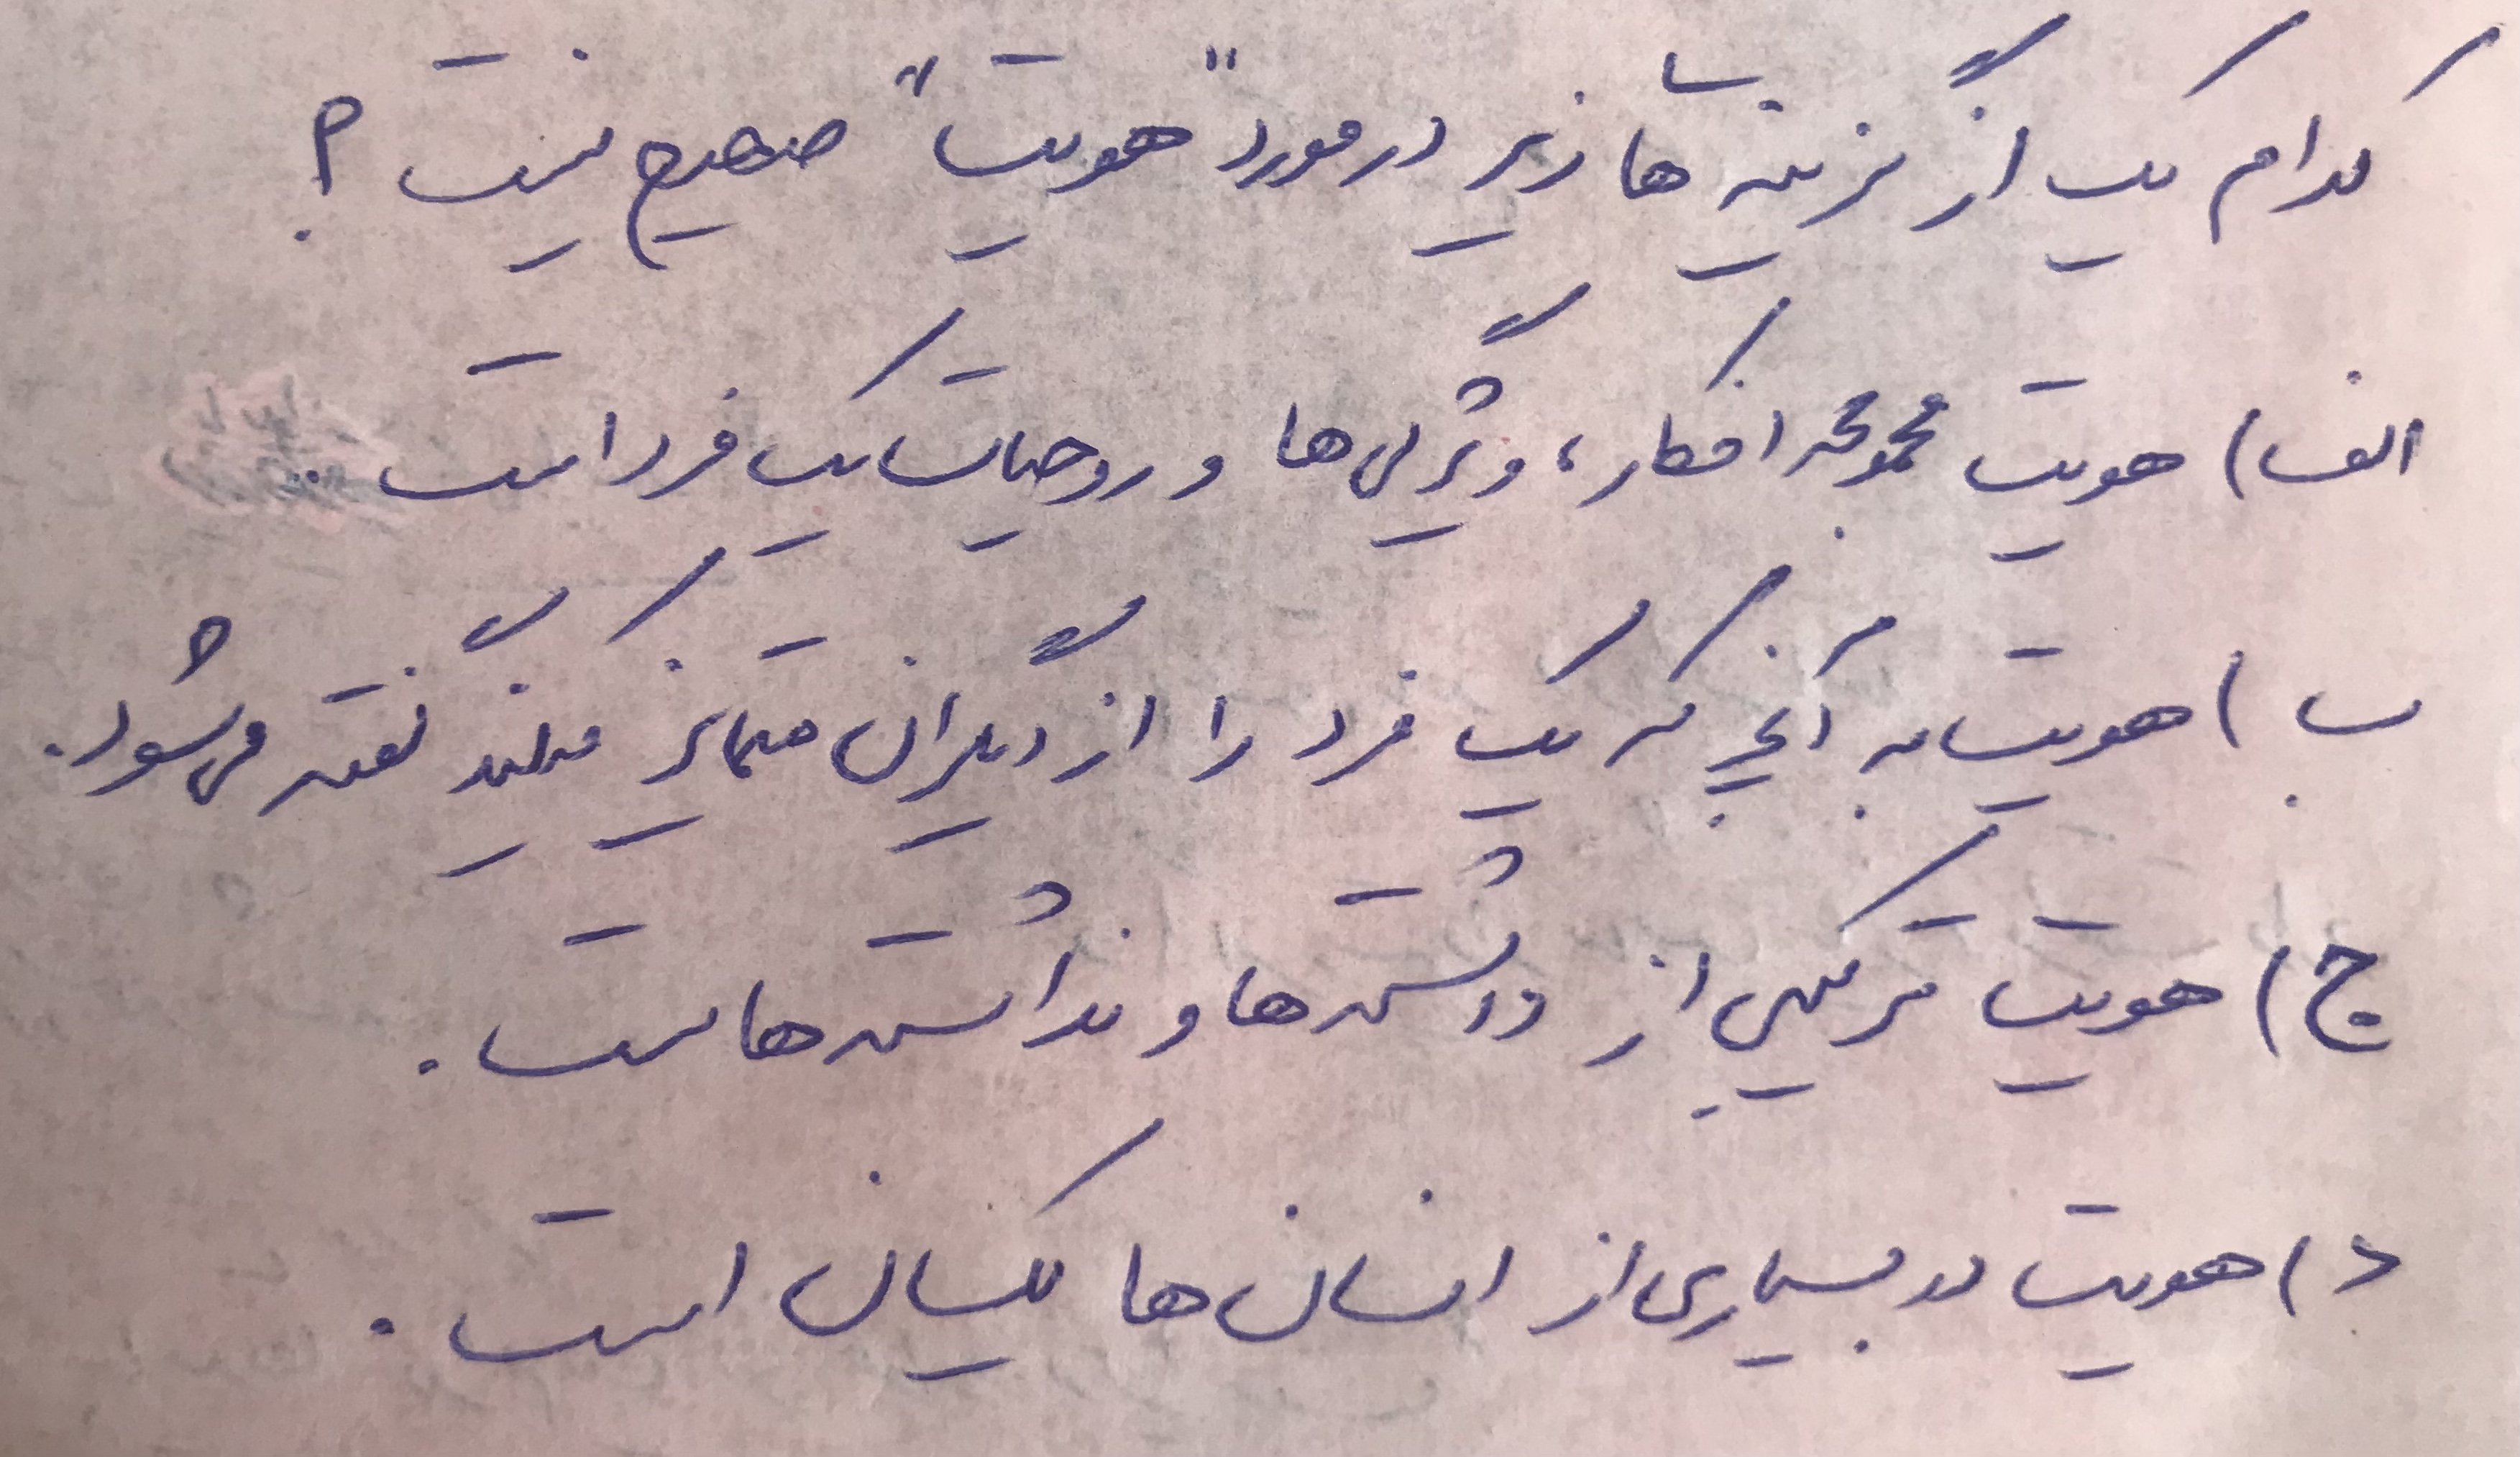 کدام یک از گزینه‌ها زیر در مورد "هویت" صحیح نیست ؟
الف) هویت مجموعه افکار، ویژگی‌ها و روحیات یک فرد است .
ب) هویت به آنچه که یک فرد را از دیگران متمایز میکند گفته می‌شود.
ج) هویت ترکیبی از داشته‌ها و نداشته‌هاست .
د) هویت در بسیاری از انسان‌ها یکسان است .